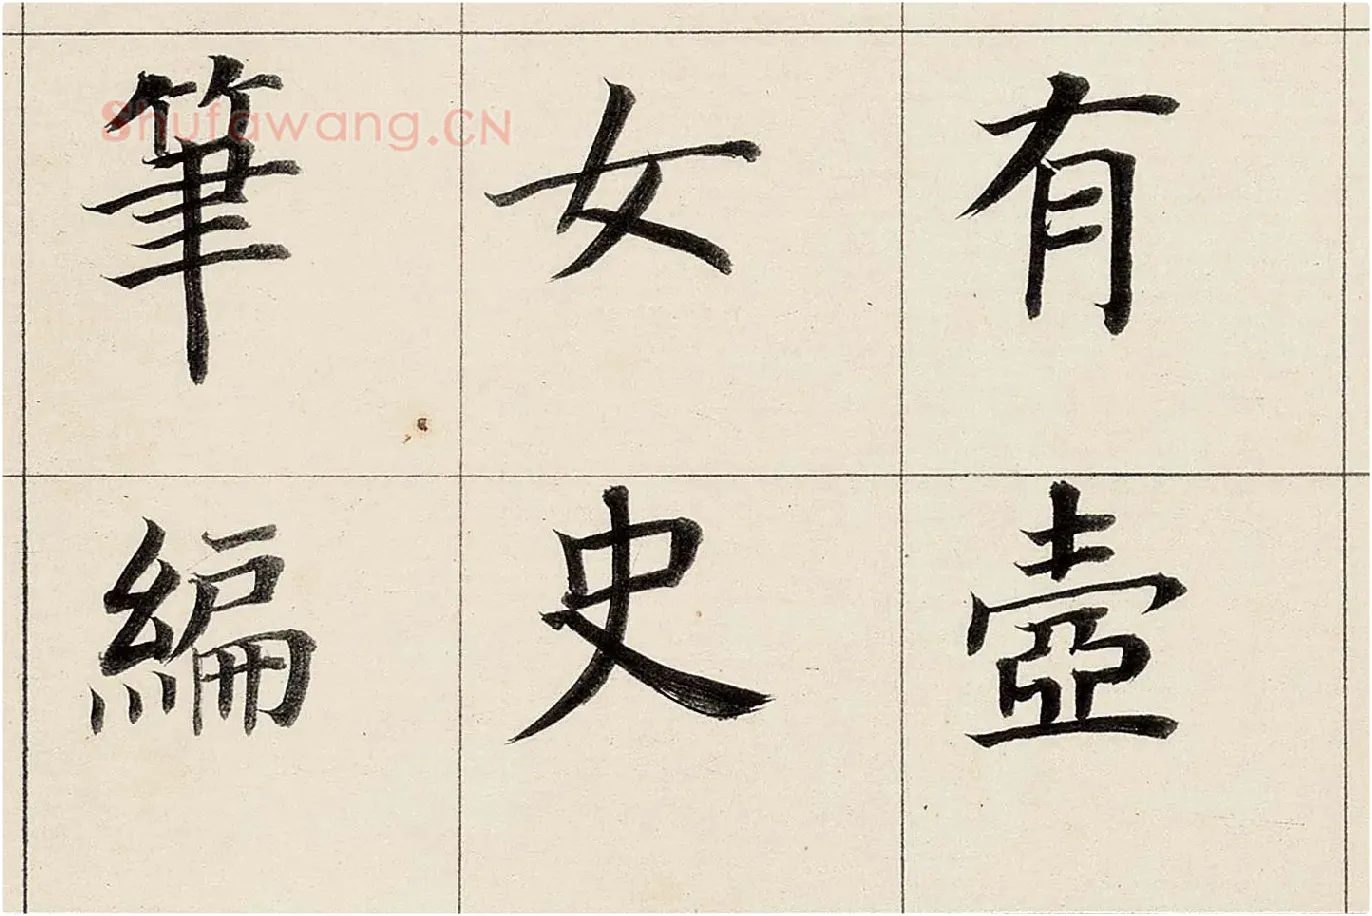 有壺
女史
筆編
Shufawang.CN